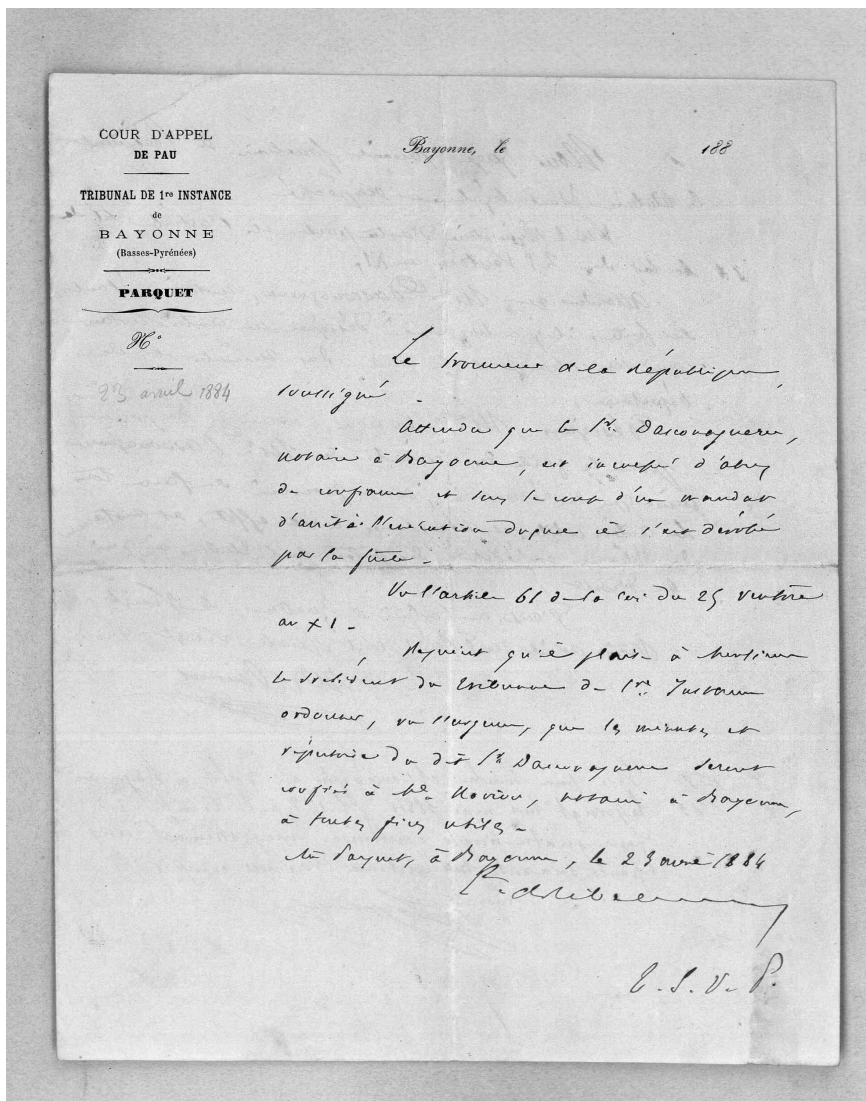 COUR D'APPEL
DE PAU
TRIBUNAL DE 1re INSTANCE
de
BAYONNE
(Basses-Pyrénées)
PARQUET
N°
23 avril 1884
Bayonne, le 188
Le Procureur de la République,
soussigné.
Attendu que le Sr. Dasconaguerre,
notaire à Bayonne, est inculpé d'abus
de confiance et sous le coup d'un mandat
d'arrêt à l'exécution duquel il s'est dérobé
par la fuite.
Vu l'article 61 de la loi du 25 Ventôse
an XI.
Requiert qu'il plaise à Monsieur
le Président du Tribunal de 1re Instance
ordonner, vu l'urgence, que les minutes et
répertoire du dit Sr Dasconaguerre seront
confiés à Me, notaire à Bayonne,
à toutes fins utiles.
Au Parquet, à Bayonne, le 23 avril 1884
T. S. V. P.